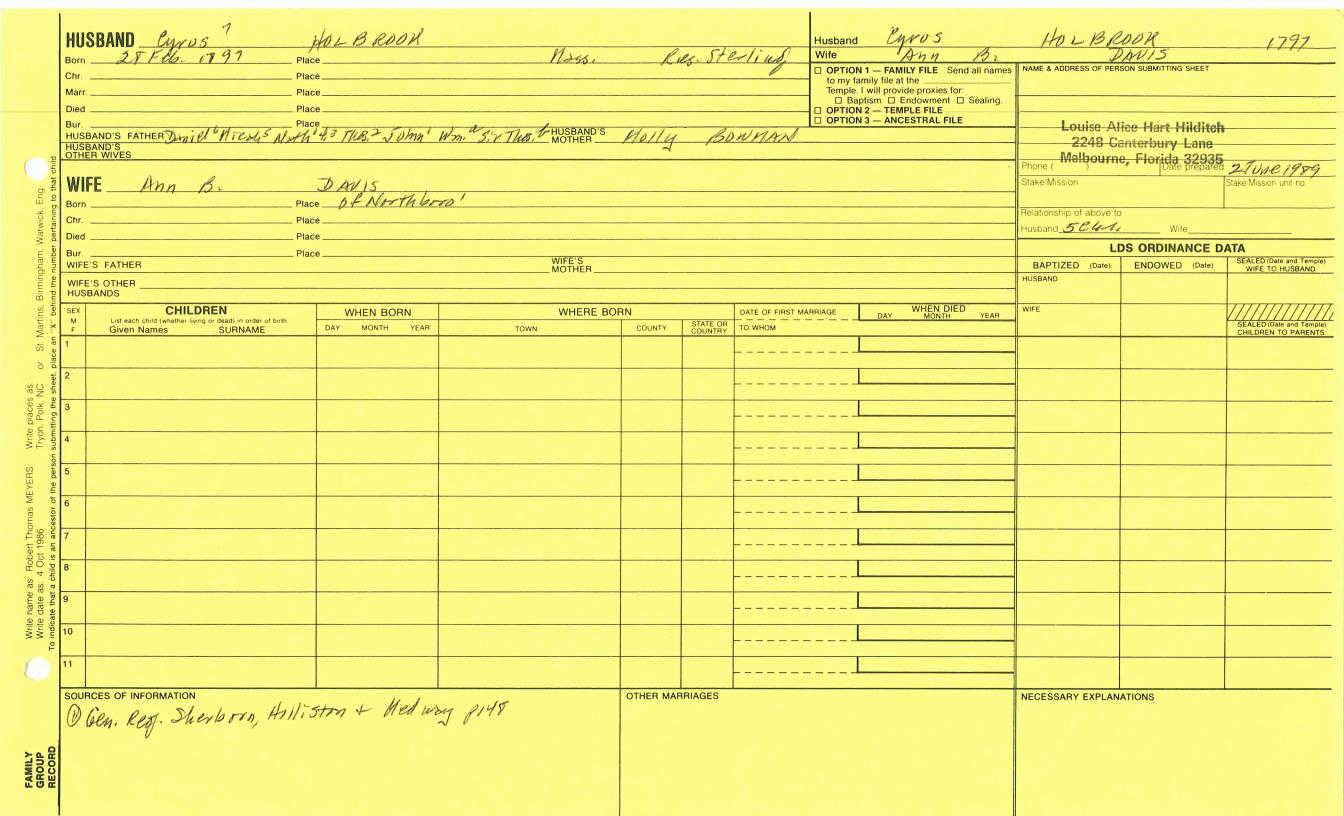 HUSBAND Cyrus 7 HOLBROOK
Born 28 Feb. 1797 Place Mass. Res. Sterling
Chr. Place
Marr. Place
Died Place
Bur. Place
HUSBAND'S FATHER Daniel⁶ Nath'l John¹ Wm. Sir Thos. HUSBAND'S MOTHER Molly BOWMAN
HUSBAND'S OTHER WIVES
WIFE Ann B. DAVIS
Born Place of Northboro'
Chr. Place
Died Place
Bur. Place
WIFE'S FATHER WIFE'S MOTHER
WIFE'S OTHER HUSBANDS
Husband Cyrus HOLBROOK 1797
Wife Ann B. DAVIS
☐ OPTION 1 — FAMILY FILE Send all names
to my family file at the
Temple. I will provide proxies for:
☐ Baptism ☐ Endowment ☐ Sealing.
☐ OPTION 2 — TEMPLE FILE
☐ OPTION 3 — ANCESTRAL FILE
NAME & ADDRESS OF PERSON SUBMITTING SHEET
Louise Alice Hart Hilditch
2248 Canterbury Lane
Melbourne, Florida 32935
Phone ( ) Date prepared 2 June 1989
Stake/Mission Stake/Mission unit no.
Relationship of above to
Husband 5C Wife
LDS ORDINANCE DATA
BAPTIZED (Date) ENDOWED (Date) SEALED (Date and Temple) WIFE TO HUSBAND
HUSBAND
WIFE
SEALED (Date and Temple) CHILDREN TO PARENTS
SEX M F
CHILDREN
List each child (whether living or dead) in order of birth
Given Names SURNAME
WHEN BORN
DAY MONTH YEAR
WHERE BORN
TOWN COUNTY STATE OR COUNTRY
DATE OF FIRST MARRIAGE
TO WHOM
WHEN DIED
DAY MONTH YEAR
1
2
3
4
5
6
7
8
9
10
11
SOURCES OF INFORMATION
① Gen. Reg. Sherborn, Holliston + Medway p148
OTHER MARRIAGES
NECESSARY EXPLANATIONS
FAMILY GROUP RECORD
Write name as: Robert Thomas MEYERS Write places as:
Write date as: 4 Oct 1986 Tryon, Polk, NC or St. Martins, Birmingham, Warwick, Eng.
To indicate that a child is an ancestor of the person submitting the sheet, place an "X" behind the number pertaining to that child